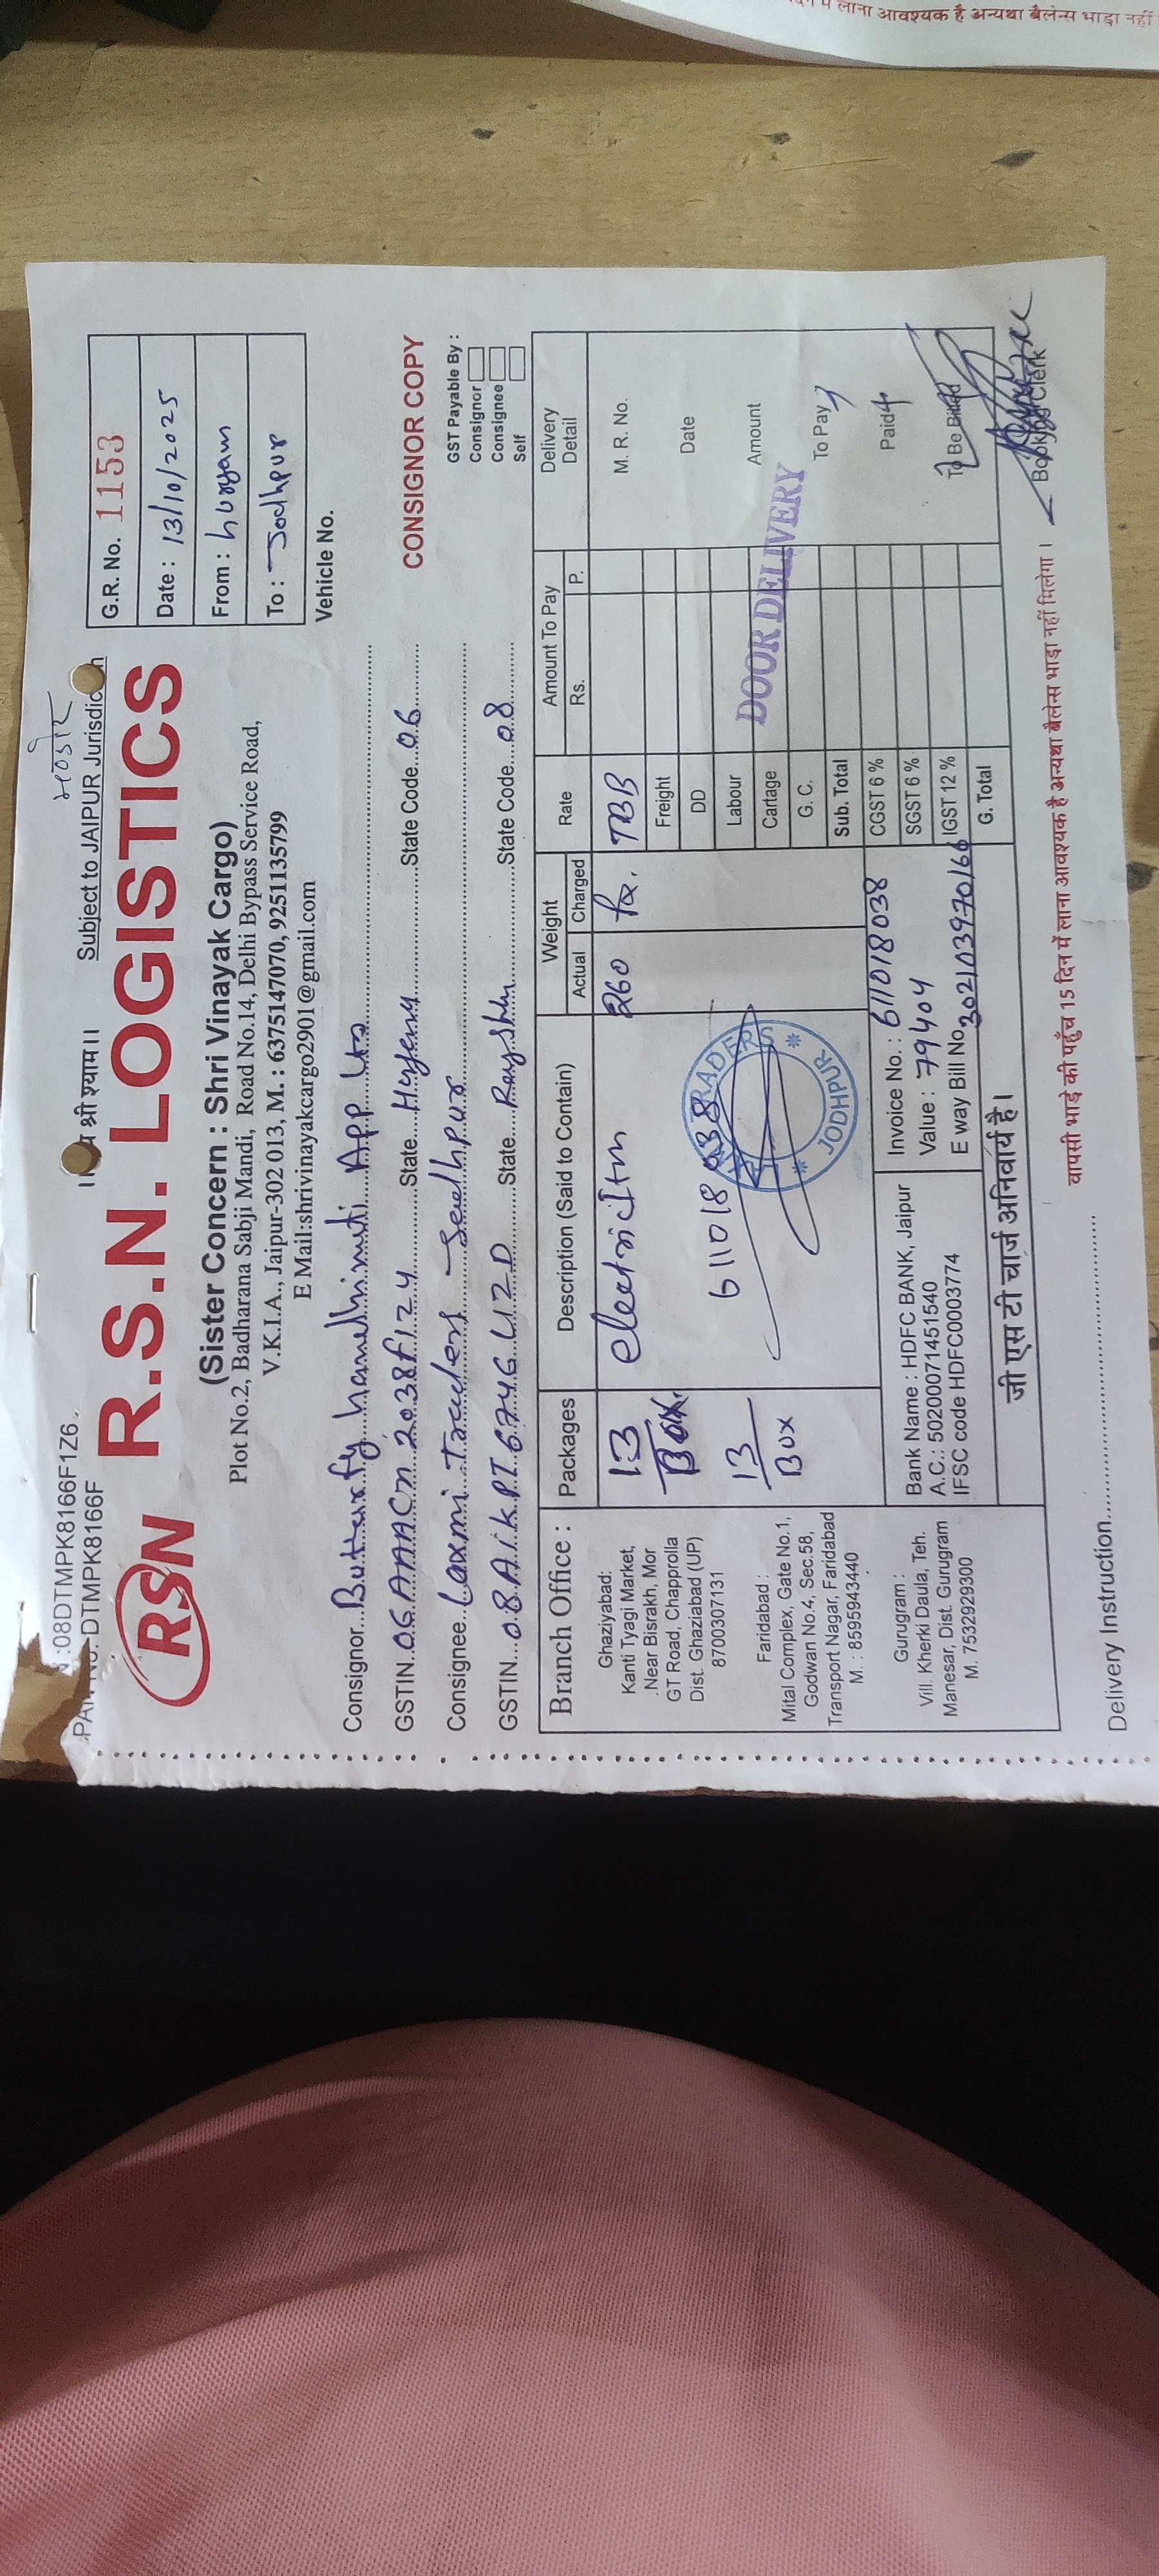 में लाना आवश्यक है अन्यथा बैलेन्स भाड़ा नहीं
:08DTMPK8166F1Z6
PAN No. DTMPK8166F
श्री श्याम।।
Subject to JAIPUR Jurisdic
RSN R.S.N. LOGISTICS
(Sister Concern : Shri Vinayak Cargo)
Plot No.2, Badharana Sabji Mandi, Road No.14, Delhi Bypass Service Road,
V.K.I.A., Jaipur-302 013, M. : 6375147070, 9251135799
E Mail:shrivinayakcargo2901@gmail.com
G.R. No. 1153
Date : 13/10/2025
From :
To : Jodhpur
Vehicle No.
CONSIGNOR COPY
Consignor Butterfly App
GSTIN 06AAACM2038F1Z4 State State Code 06
Consignee Laxmi Traders Jodhpur
GSTIN 08AikPT6746L1ZD State State Code 08
GST Payable By :
Consignor
Consignee
Self
Branch Office :
Ghaziyabad:
Kanti Tyagi Market,
Near Bisrakh, Mor
GT Road, Chapprolla
Dist. Ghaziabad (UP)
8700307131
Faridabad :
Mital Complex, Gate No.1,
Godwan No.4, Sec.58,
Transport Nagar, Faridabad
M. : 8595943440
Gurugram :
Vill. Kherki Daula, Teh.
Manesar, Dist. Gurugram
M. 7532929300
Packages
13
Box
13
Box
Description (Said to Contain)
electric Itm
611018038
TRADERS
JODHPUR
Weight
Actual Charged
260
Rate
TBB
Freight
DD
Labour
Cartage
G. C.
Sub. Total
CGST 6 %
SGST 6 %
IGST 12 %
G. Total
Amount To Pay
Rs. P.
DOOR DELIVERY
Delivery
Detail
M. R. No.
Date
Amount
To Pay
Paid
To Be Billed
Booking Clerk
Bank Name : HDFC BANK, Jaipur
A.C.: 50200071451540
IFSC code HDFC0003774
Invoice No. : 611018038
Value : 79404
E way Bill No. 302103970166
जी एस टी चार्ज अनिवार्य है।
वापसी भाड़े की पहुँच 15 दिन में लाना आवश्यक है अन्यथा बैलेन्स भाड़ा नहीं मिलेगा।
Delivery Instruction